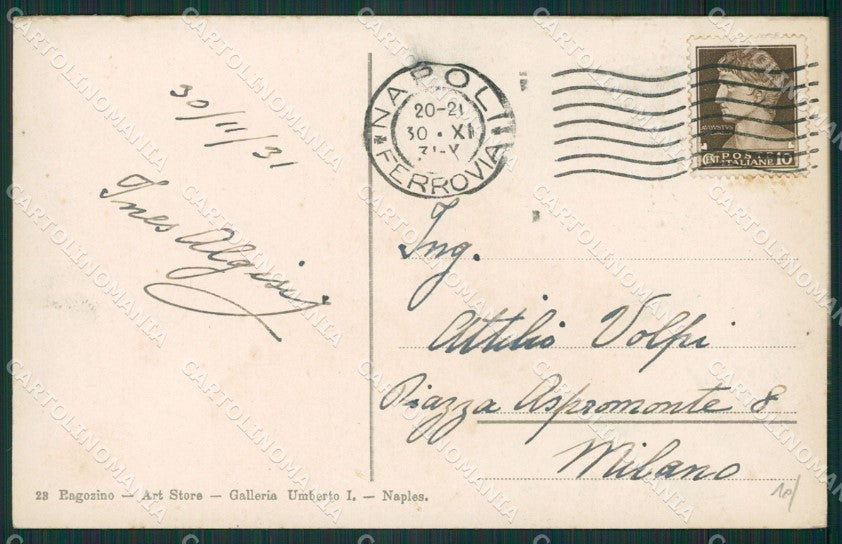 30/11/31
Ines Algisi
NAPOLI
20-21
30 · XI
31-X
FERROVIA
AVGVSTVS
CENT. POSTE 10
ITALIANE
Ing.
Attilio Volpi
Piazza Aspromonte 8
Milano
10/
23 Ragozino — Art Store — Galleria Umberto I. — Naples.
CARTOLINOMANIA